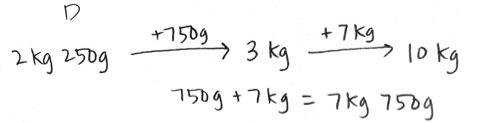 D
2kg 250g +750g → 3 kg + 7kg → 10 kg
750g + 7kg = 7kg 750g